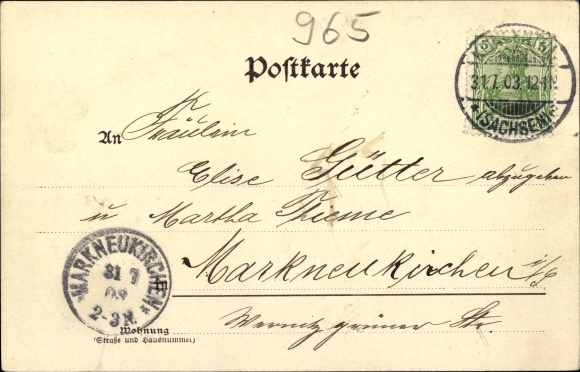 965
Postkarte
5 5
31.7.03.12-1N.
(SACHSEN)
An Fräulein
Elise Gütter abzugeben
u Martha Thieme
Markneukirchen i/S
MARKNEUKIRCHEN
31 7
03
2-3N.
Wernitzgrüner Str.
Wohnung
(Straße und Hausnummer)